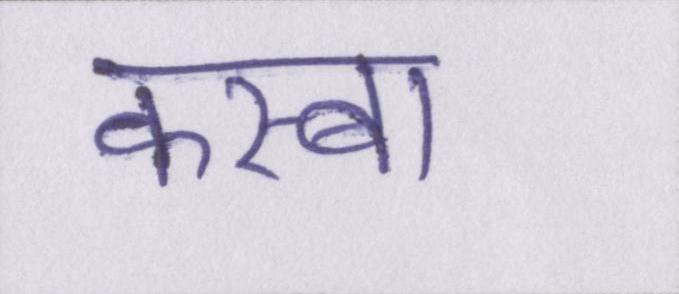 कस्बा